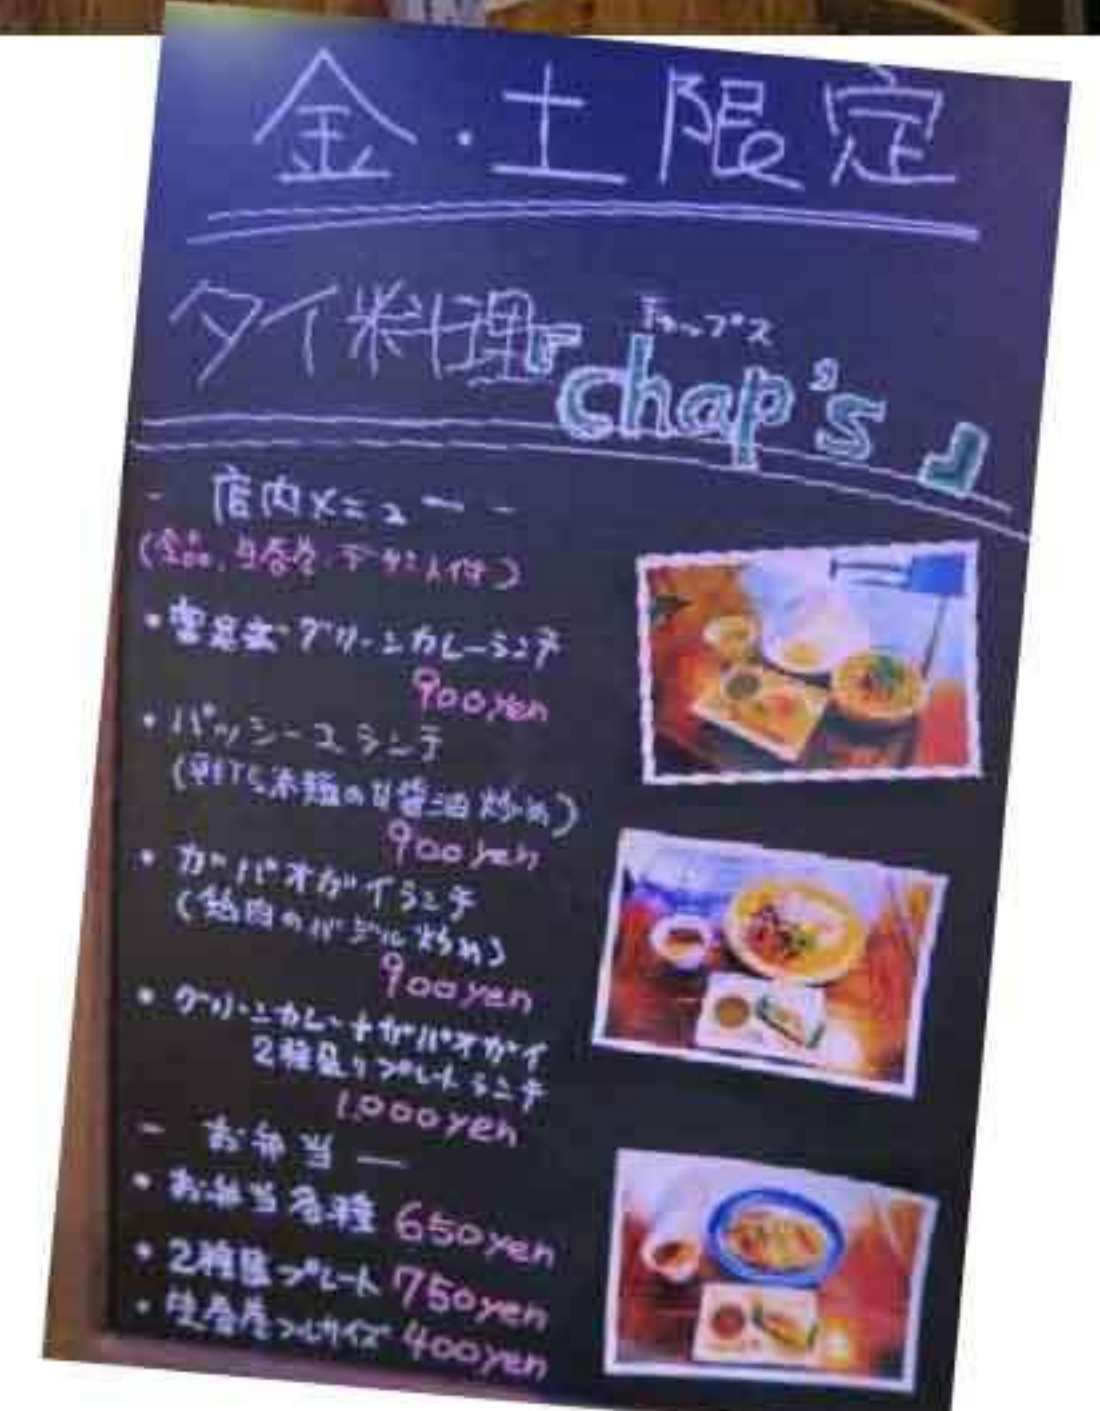 金・土限定
タイ料理『chap's』
チャップス
- 店内メニュー -
(全品、生春巻・デザート付)
・宮廷式グリーンカレーランチ
900yen
・パッシーユランチ
(平打ち米麺の甘醤油炒め)
900yen
・ガパオガイランチ
(鶏肉のバジル炒め)
900yen
・グリーンカレー+ガパオガイ
2種盛りプレートランチ
1,000yen
- お弁当 -
・お弁当各種 650yen
・2種盛プレート 750yen
・生春巻フルサイズ 400yen